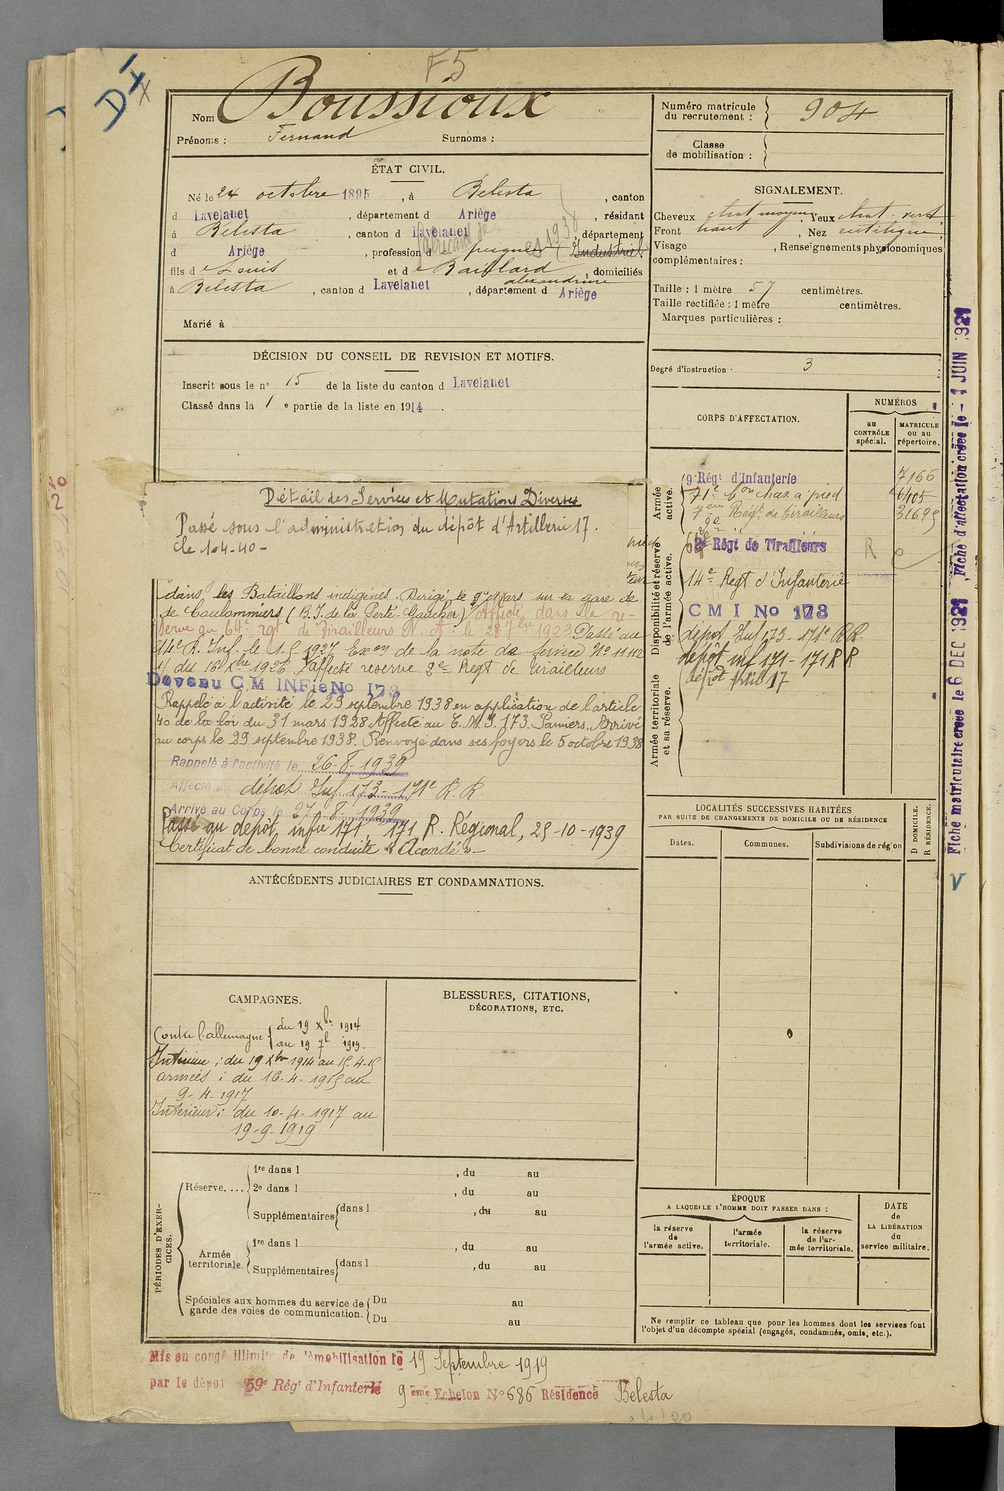 F5
DI
X
Nom Boussioux
Prénoms : Fernand Surnoms :
ÉTAT CIVIL.
Né le 24 octobre 1895, à Belesta, canton
d Lavelanet, département d Ariège, résidant
à Belesta, canton d Lavelanet, département
d Ariège, profession d peignes (Industriel)
fils de Louis et de Baillard alexandrine, domiciliés
à Belesta, canton d Lavelanet, département d Ariège
Marié à
DÉCISION DU CONSEIL DE REVISION ET MOTIFS.
Inscrit sous le n° 15 de la liste du canton d Lavelanet
Classé dans la 1 e partie de la liste en 1914.
Détail des Services et Mutations Diverses
Passé sous l'administration du dépôt d'Artillerie 17.
le 1-4-40-
dans les Bataillons indigènes. Dirigé le 9 Mars sur la gare de
de Coulommiers (B.I. de la Ferté-Gaucher) Affecté dans la re-
serve au 64e Rgt de Tirailleurs N. A. le 28 7bre 1923 Passé au
14e R. Inf. le 1.5 1927 Exon de la note de service N° 11112
du 16 Xbre 1926. affecté reserve 2e Regt de Tirailleurs
Devenu C M INFie No 173
Rappelé à l'activité le 29 septembre 1938 en application de l'article
40 de la loi du 31 mars 1928 Affecté au C.M.I 173 Pamiers. Arrivé
au corps le 29 septembre 1938. Renvoyé dans ses foyers le 5 octobre 1938
Rappelé à l'activité le 26-8-1939
Affecté au dépôt Inf 173 - 171e R.R.
Arrivé au Corps le 27-8-1939
Passé au dépôt infie 171, 171 R. Régional, 25-10-1939
Certificat de bonne conduite "Accordé"
ANTÉCÉDENTS JUDICIAIRES ET CONDAMNATIONS.
CAMPAGNES.
Contre l'allemagne { du 19 Xbre 1914
au 19 7b 1919.
Intérieur : du 19 Xbre 1914 au 15-4-15
armées : du 16-4-1915 au
9-4-1917
Intérieur : du 10-4-1917 au
19-9-1919
BLESSURES, CITATIONS,
DÉCORATIONS, ETC.
PÉRIODES D'EXER-
CICES.
Réserve....
1re dans l , du au
2e dans l , du au
Supplémentaires dans l , du au
Armée
territoriale.
1re dans l , du au
Supplémentaires dans l , du au
Spéciales aux hommes du service de
garde des voies de communication.
Du au
Du au
Mis en congé illimité de démobilisation le 19 Septembre 1919
par le dépôt 59e Régt d'Infanterie 9eme Echelon N° 686 Résidence Belesta
Numéro matricule
du recrutement : 904
Classe
de mobilisation :
SIGNALEMENT.
Cheveux chat moyen, Yeux chat. vert
Front haut, Nez rectiligne
Visage , Renseignements physionomiques
complémentaires :
Taille : 1 mètre 57 centimètres.
Taille rectifiée : 1 mètre centimètres.
Marques particulières :
Degré d'instruction : 3
CORPS D'AFFECTATION.
NUMÉROS
au
CONTRÔLE
spécial.
MATRICULE
ou au
répertoire.
Armée
active.
9e Régt d'Infanterie 7166
71e Bon chas. à pied 6405
7eme Regt de Tirailleurs 31675
Disponibilité et réserve
de l'armée active.
Régt de Tirailleurs R
14e Regt d'Infanterie
C M I No 173
dépôt Inf 173 - 171e R.R.
dépôt inf 171 - 171 R R
dépôt Artie 17
Armée territoriale
et sa réserve.
LOCALITÉS SUCCESSIVES HABITÉES
PAR SUITE DE CHANGEMENTS DE DOMICILE OU DE RÉSIDENCE
Dates.
Communes.
Subdivisions de région
D DOMICILE.
R RÉSIDENCE.
ÉPOQUE
A LAQUELLE L'HOMME DOIT PASSER DANS :
la réserve
de
l'armée active.
l'armée
territoriale.
la réserve
de l'ar-
mée territoriale.
DATE
de
LA LIBÉRATION
du
service militaire.
Ne remplir ce tableau que pour les hommes dont les services font
l'objet d'un décompte spécial (engagés, condamnés, omis, etc.).
Fiche matriculaire créée le 6 DEC 1921, Fiche d'affectation créée le - 1 JUIN 1921
V